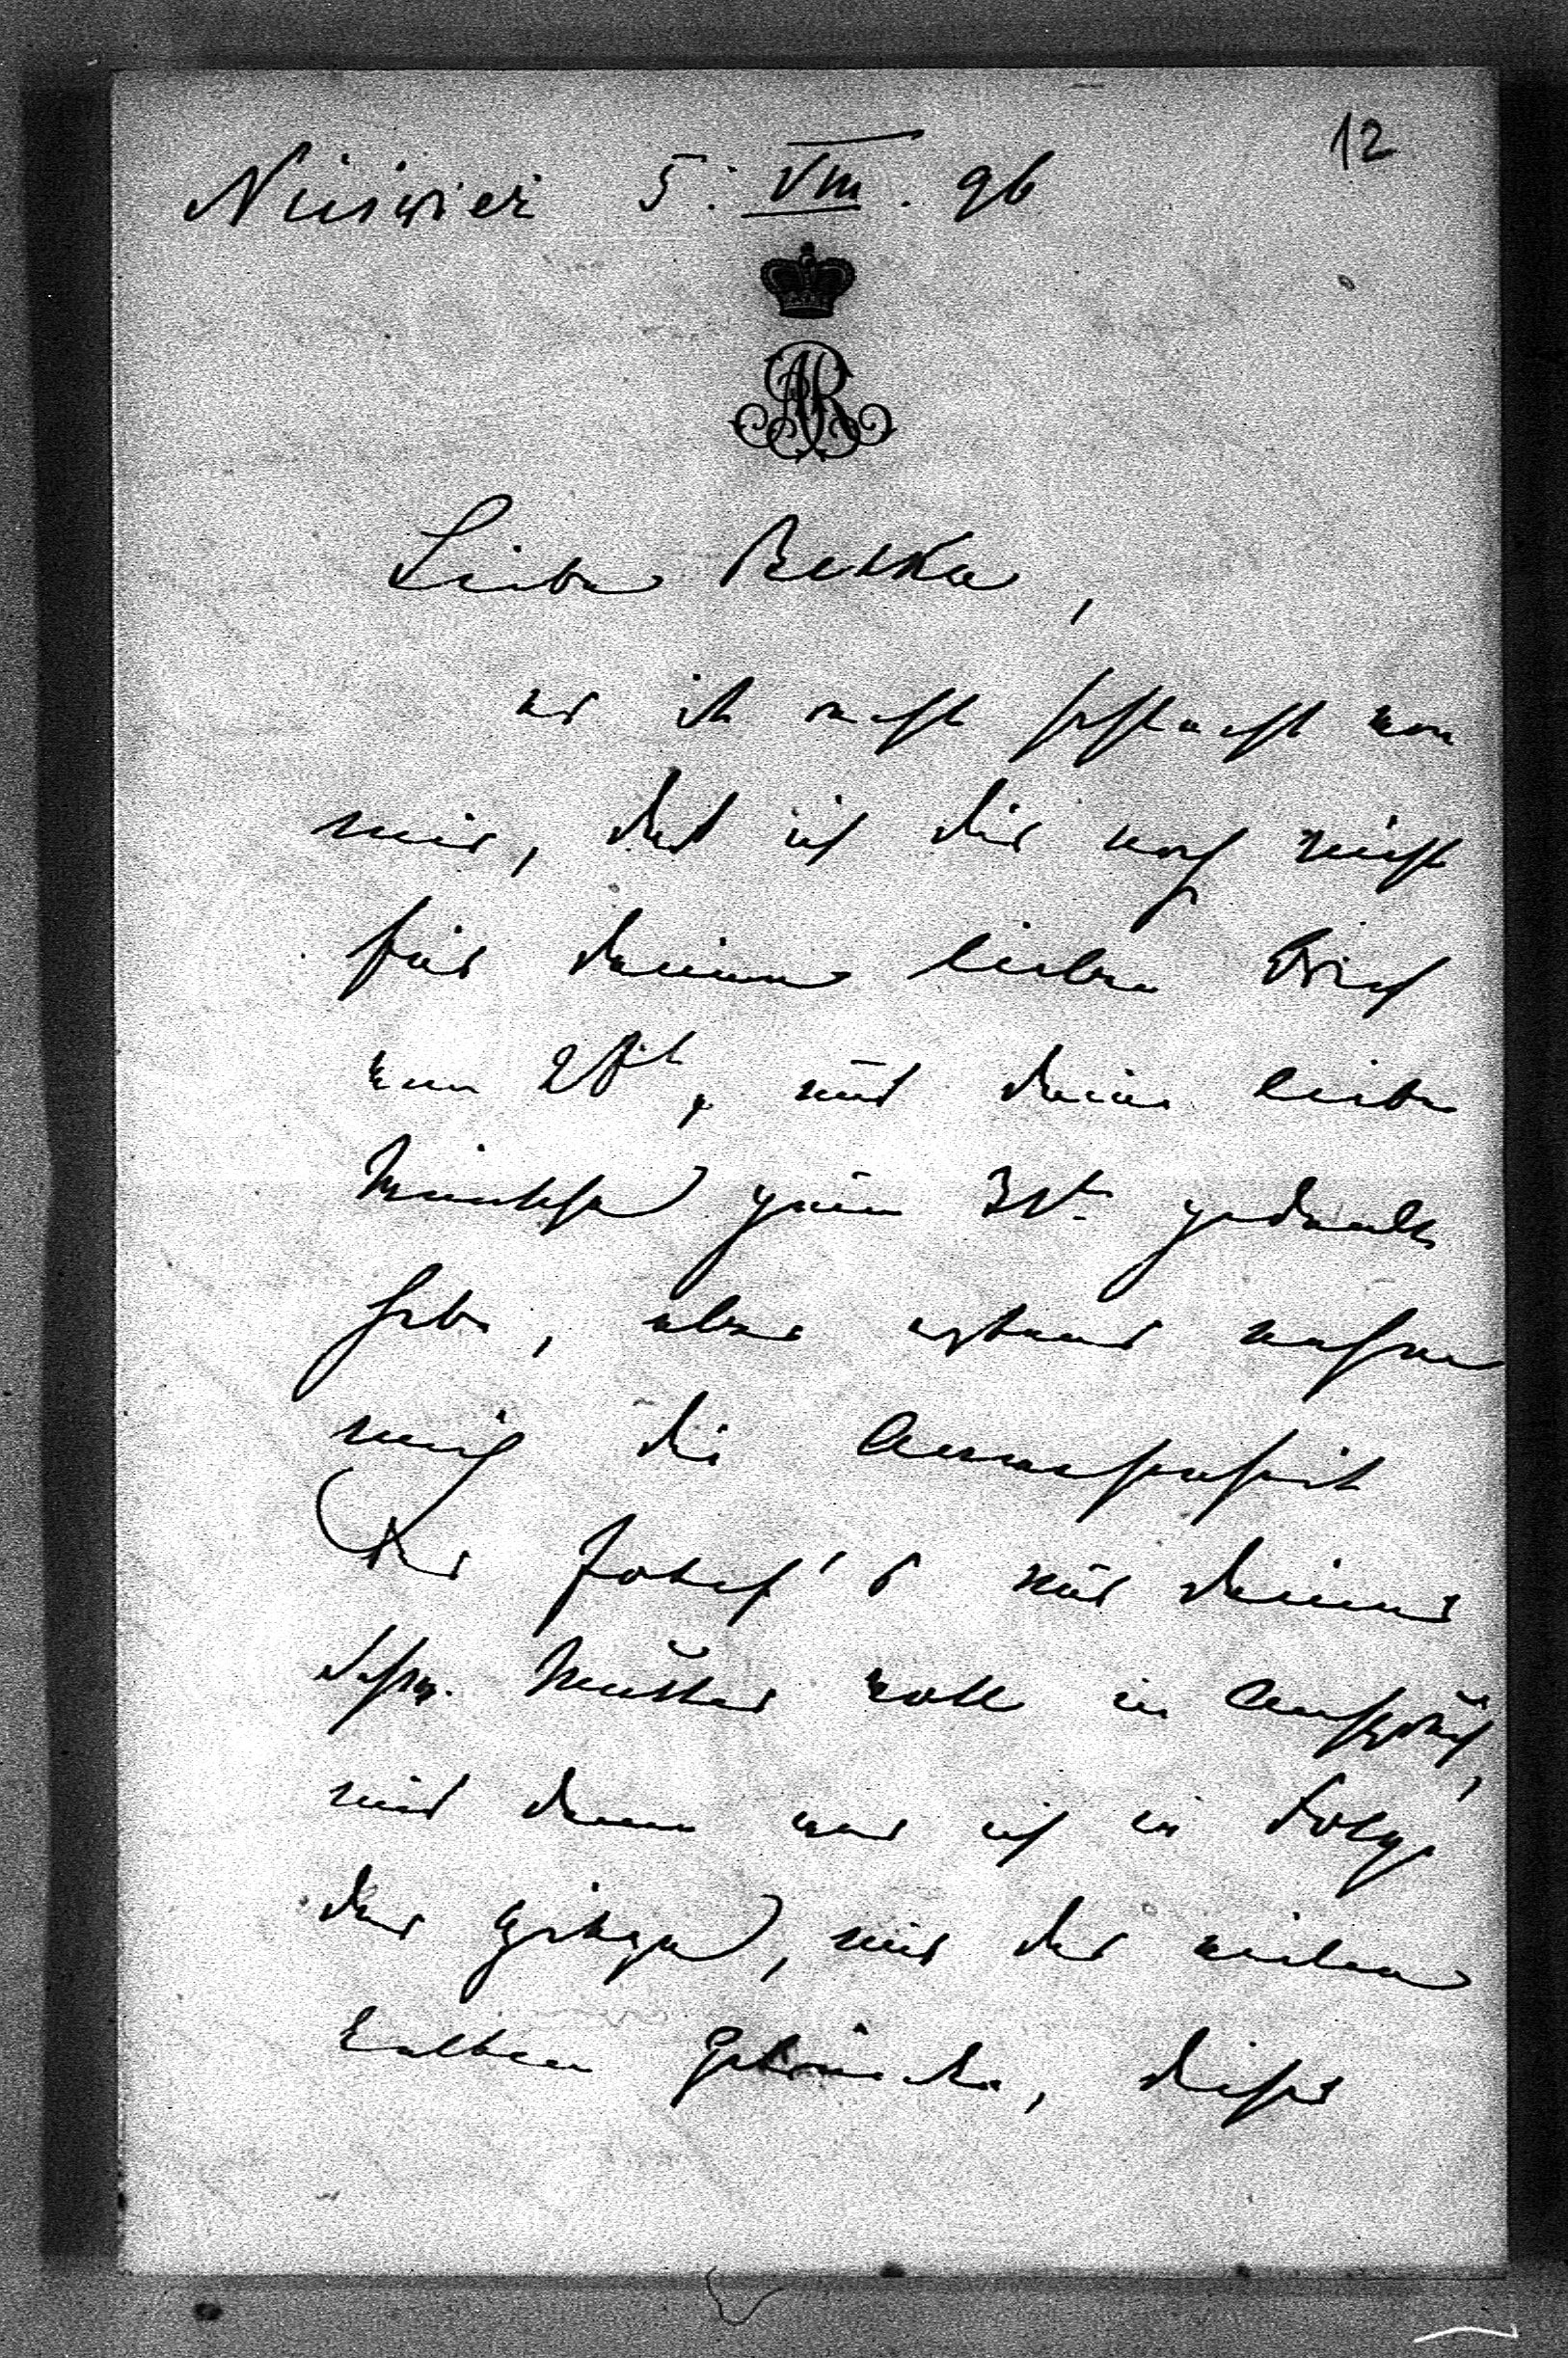 12
Nieśwież 5. VIII. 96
AR
Liebe Betka,
es ist recht schlecht von
mir, daß ich dir noch nicht
für deinen lieben Brief
vom und deine liebe
Wünsche zum 31t. gedankt
habe, aber erstens nahm
mich die Anwesenheit
der Josef's und deiner
Schw. Mutter voll in Anspruch,
und dann war ich in Folge
der Hitze, und der vielen
kalten Getränke, dieser